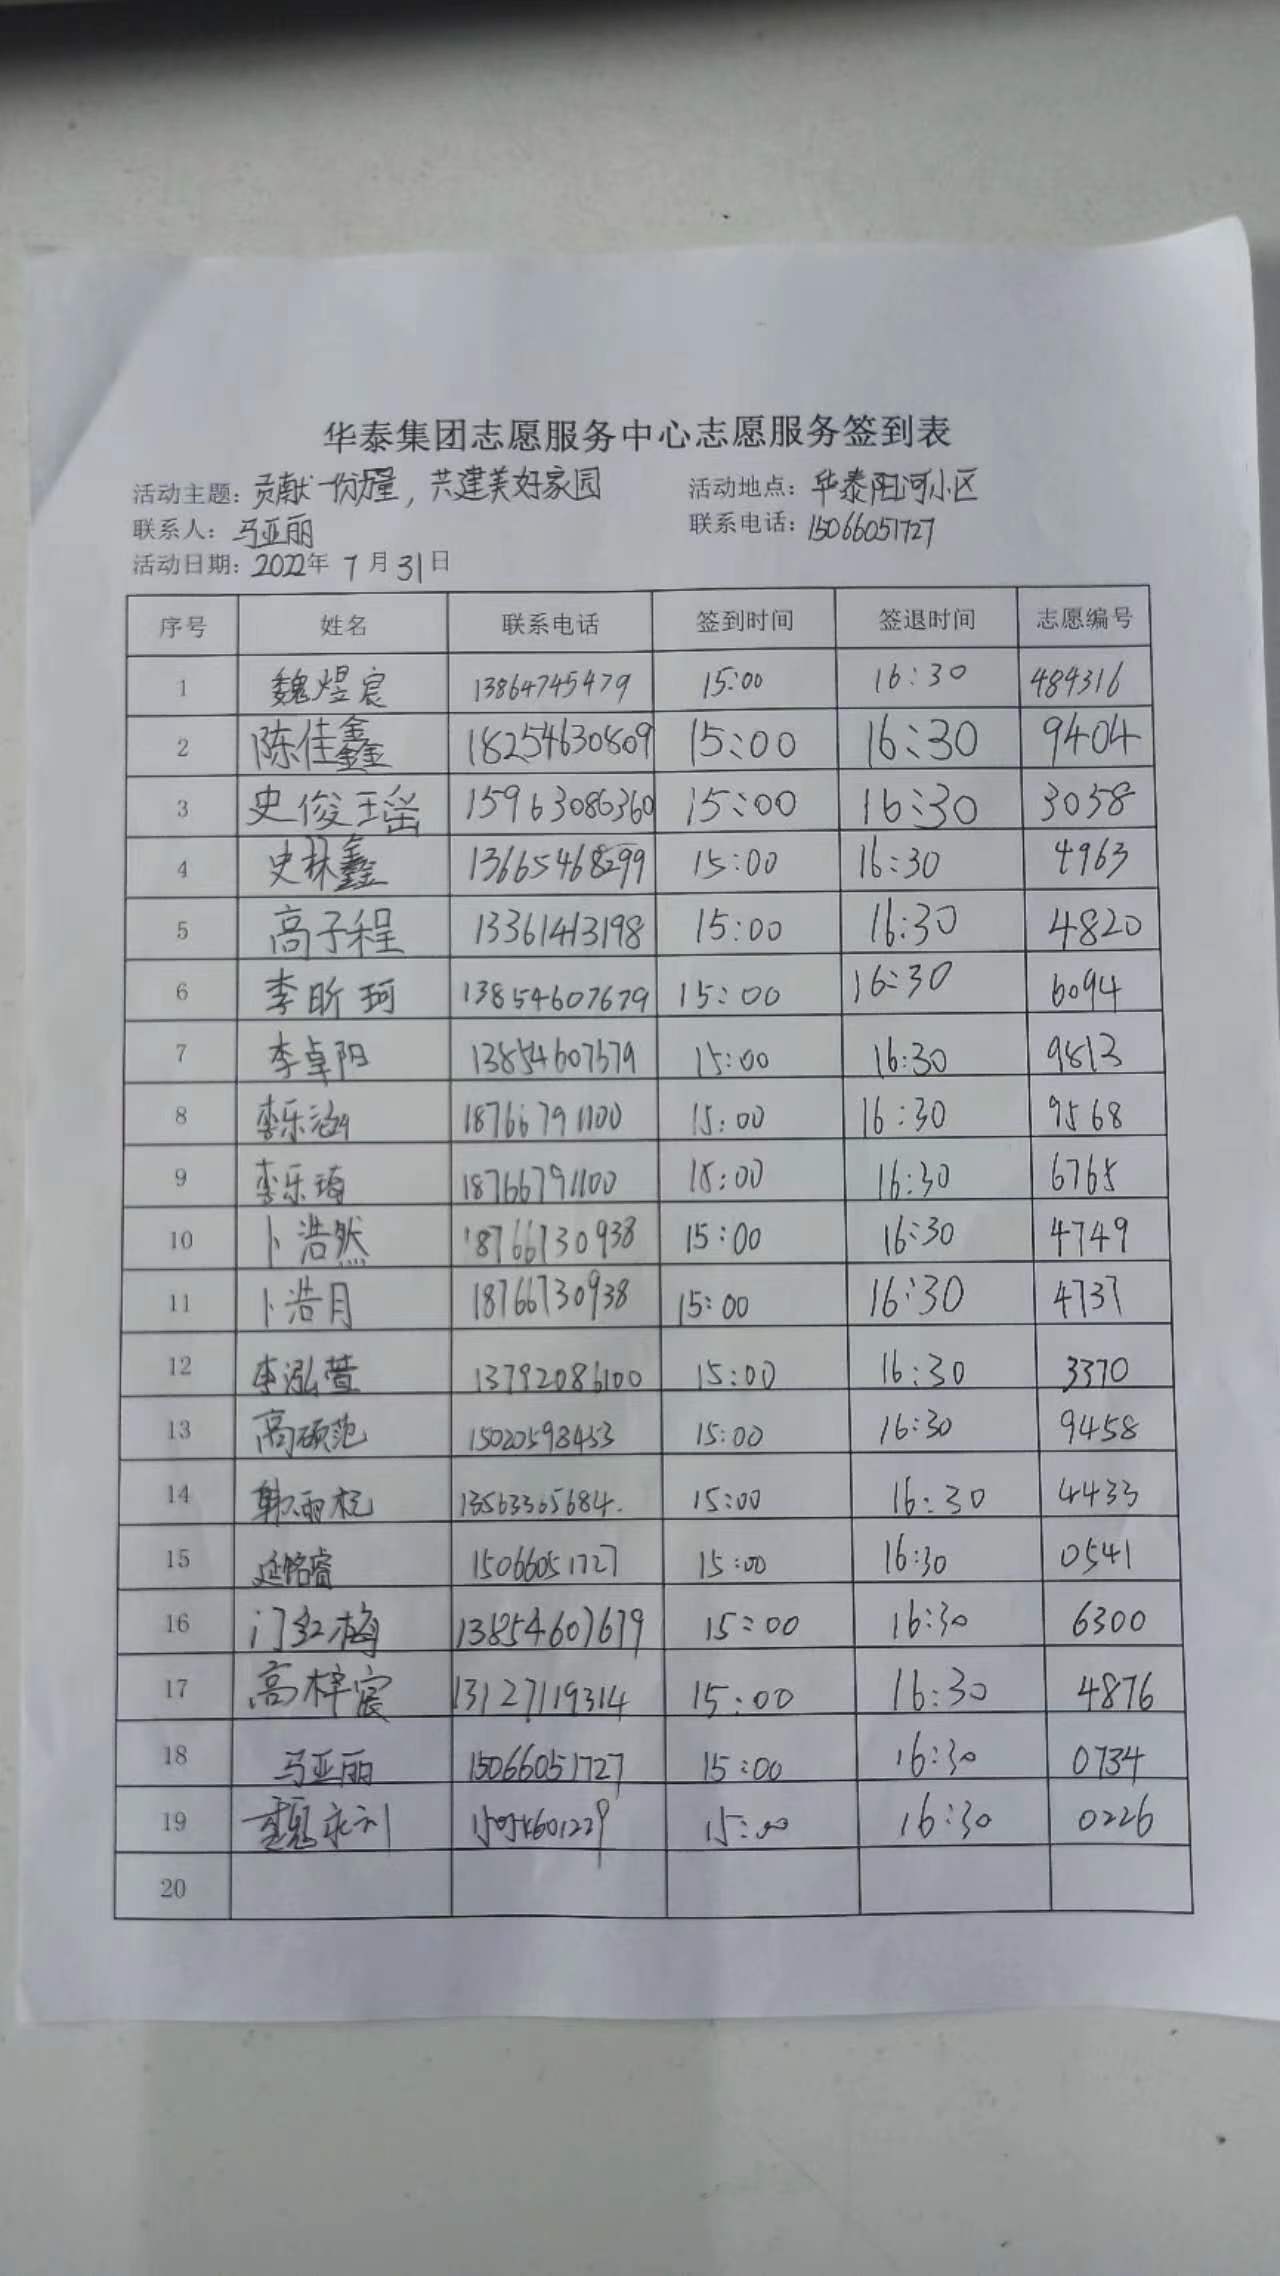 华泰集团志愿服务中心志愿服务签到表
活动主题：贡献一份力量，共建美好家园 活动地点：华泰阳河小区
联系人：马亚丽 联系电话：15066051727
活动日期：2022年7月31日
序号 姓名 联系电话 签到时间 签退时间 志愿编号
1 魏煜宸 13864745479 15:00 16:30 484316
2 陈佳鑫 18254630809 15:00 16:30 9404
3 史俊瑶 15963086360 15:00 16:30 3058
4 史林鑫 13665468299 15:00 16:30 4963
5 高子程 13361413198 15:00 16:30 4820
6 李昕珂 13854607679 15:00 16:30 6094
7 李卓阳 13854607679 15:00 16:30 9813
8 李乐涵 18766791100 15:00 16:30 9568
9 李乐琦 18766791100 15:00 16:30 6765
10 卜浩然 18766730938 15:00 16:30 4749
11 卜浩月 18766730938 15:00 16:30 4737
12 李泓萱 13792086100 15:00 16:30 3370
13 高硕范 15020598453 15:00 16:30 9458
14 韩雨杭 13563365684. 15:00 16:30 4433
15 延铭睿 15066051727 15:00 16:30 0541
16 门红梅 13854607679 15:00 16:30 6300
17 高梓宸 13127119314 15:00 16:30 4876
18 马亚丽 15066051727 15:00 16:30 0734
19 魏永利 15054601229 15:00 16:30 0226
20